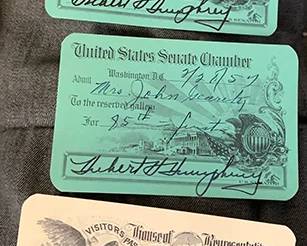 Hubert H Humphrey
United States Senate Chamber
Washington, D.C. 7/28/57
Admit Mrs. John
To the reserved gallery
For 85th
Hubert H Humphrey
VISITORS PASS
House of Representatives